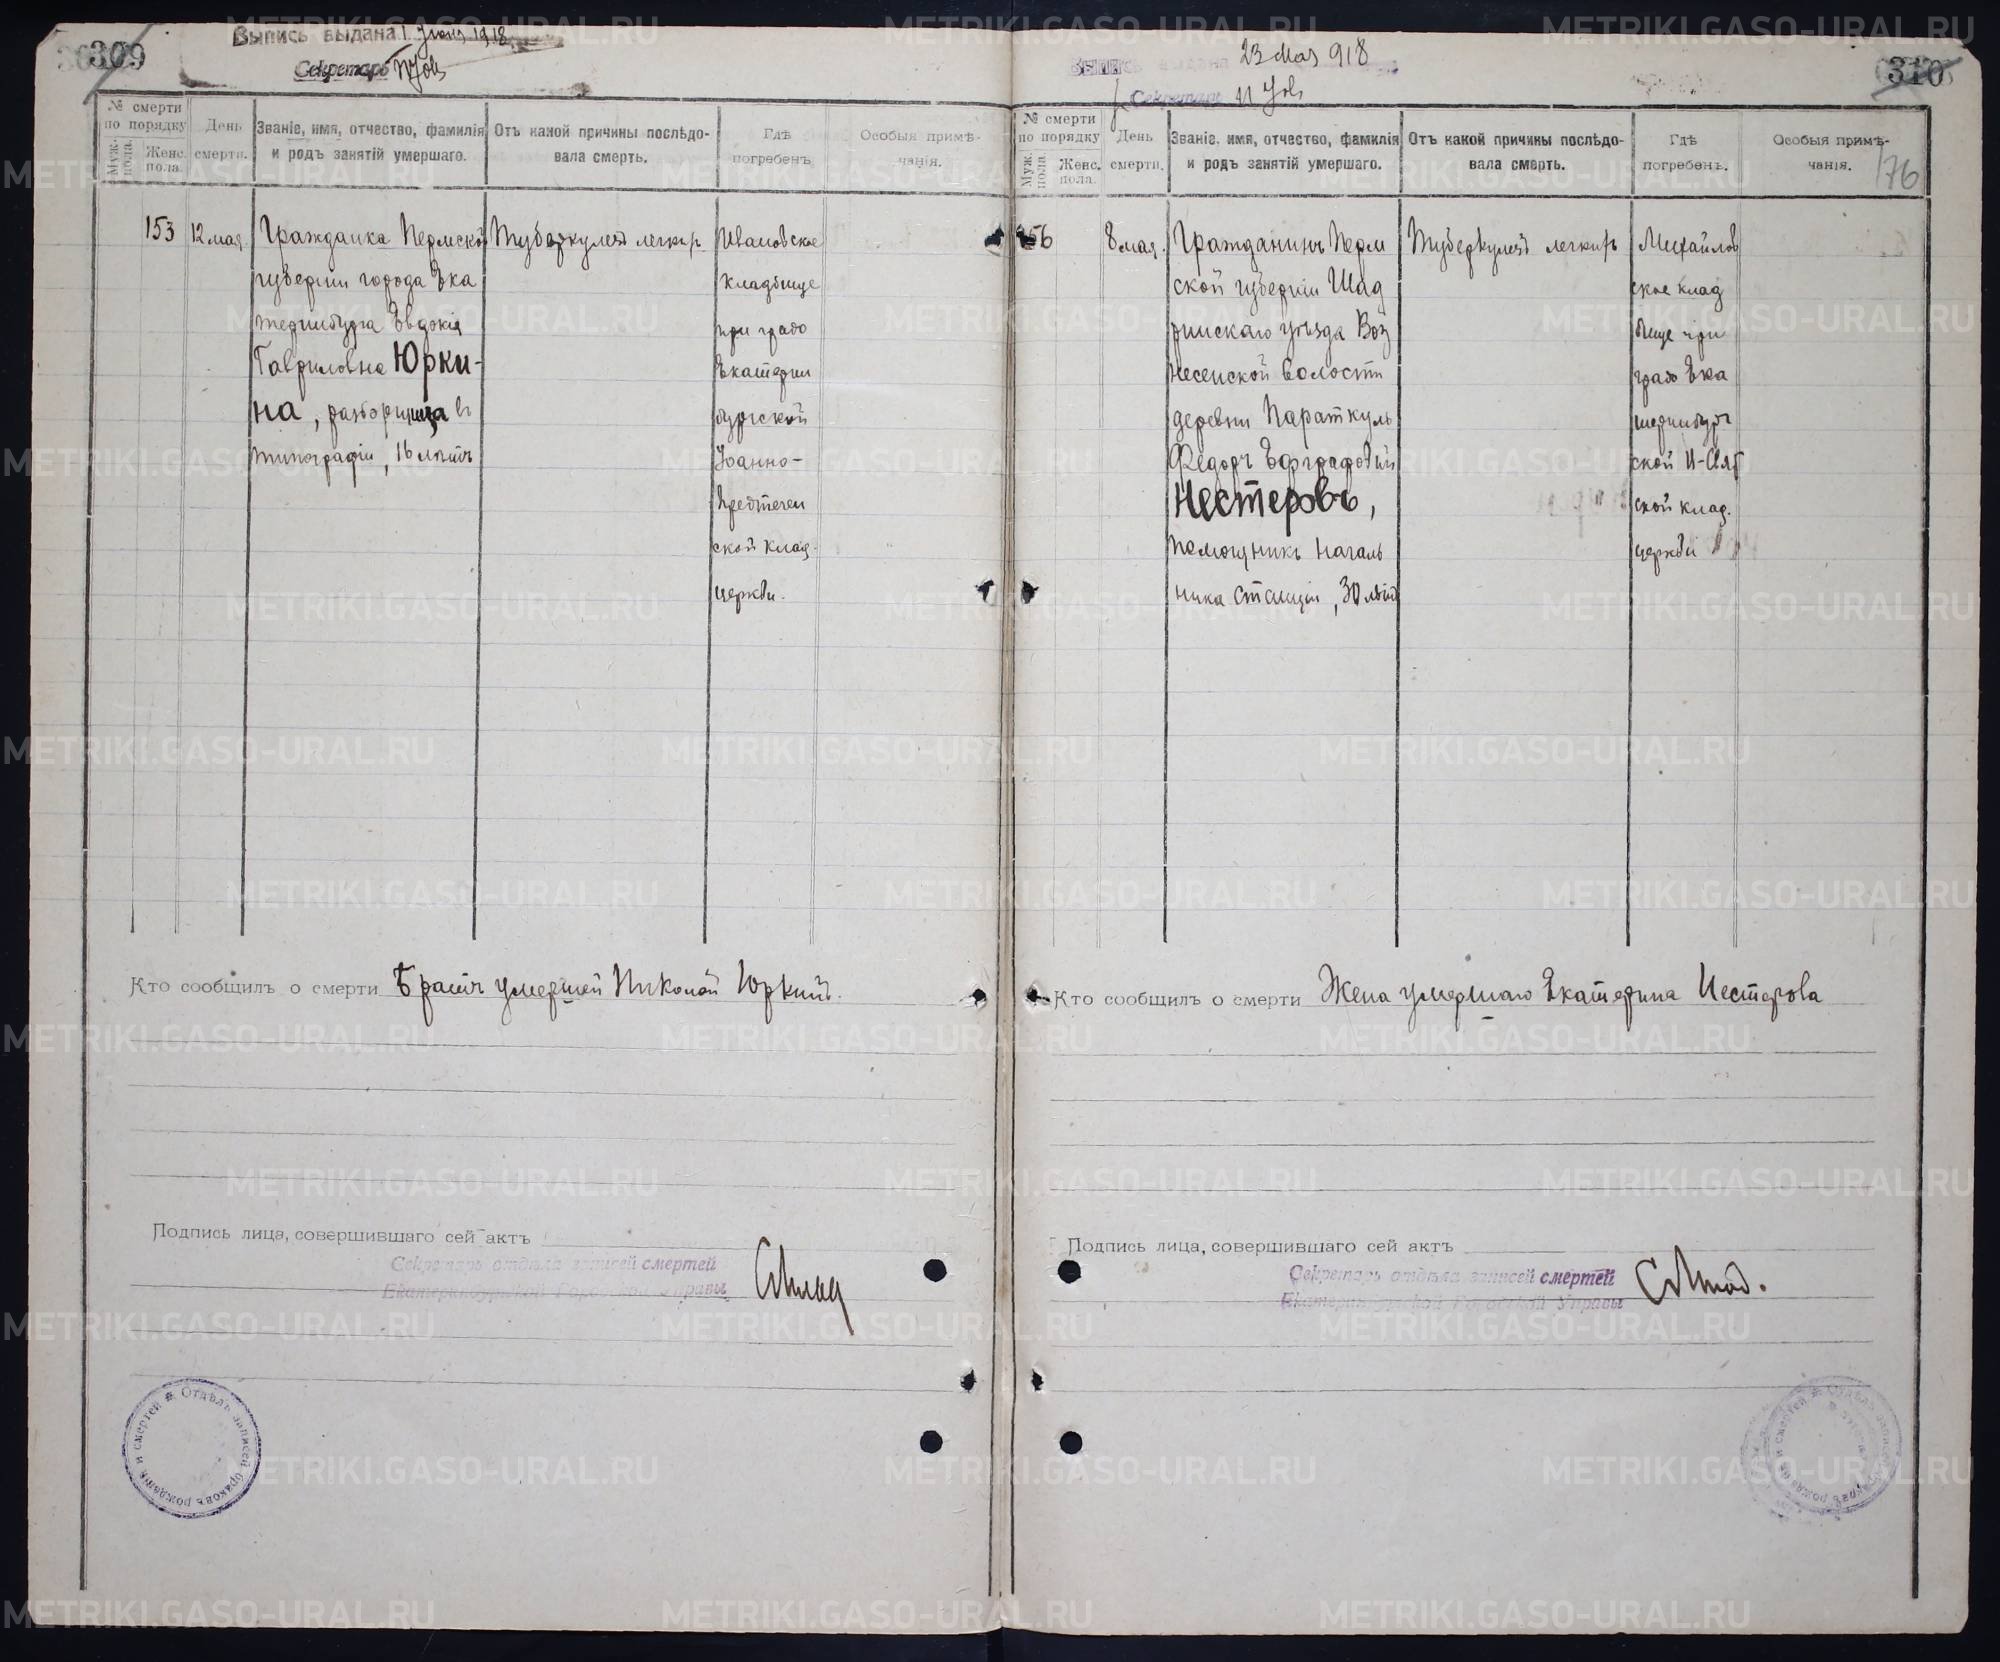 309
Выпись выдана 1 Июня 1918
Секретарь
№ смерти
по порядку
Муж. пола.
Женс. пола.
День смерти.
Званіе, имя, отчество, фамилія
и родъ занятій умершаго.
Отъ какой причины послѣдо-
вала смерть.
Гдѣ
погребенъ.
Особыя примѣ-
чанія.
153
12 мая
Гражданка Пермской
губерніи города Ека
теринбурга Евдокія
Гавриловна Юрки-
на, разборщица въ
типографіи, 16 лѣтъ
Туберкулезъ легкихъ
Ивановское
кладбище
при градо
Екатерин
бургской
Іоанно-
Предтечен
ской клад.
церкви.
Кто сообщилъ о смерти Братъ умершей Николай Юркинъ.
Подпись лица, совершившаго сей актъ
Секретарь отдѣла записей смертей
Екатеринбургской Городской Управы
Отдѣлъ записей браковъ рожденія и смертей
310
Выпись выдана 23 мая 918
Секретарь
176
№ смерти
по порядку
Муж. пола.
Женс. пола.
День смерти.
Званіе, имя, отчество, фамилія
и родъ занятій умершаго.
Отъ какой причины послѣдо-
вала смерть.
Гдѣ
погребенъ.
Особыя примѣ-
чанія.
156
8 мая.
Гражданинъ Перм
ской губерніи Шад
ринскаго уѣзда Воз
несенской волости
деревни Параткуль
Федоръ Евграфовичъ
Нестеровъ,
помощникъ началь
ника станціи, 30 лѣтъ
Туберкулезъ легкихъ
Михайлов
ское клад
бище при
градо Ека
теринбург
ской
ской клад.
церкви
Кто сообщилъ о смерти Жена умершаго Екатерина Нестерова
Подпись лица, совершившаго сей актъ
Секретарь отдѣла записей смертей
Екатеринбургской Городской Управы
METRIKI.GASO-URAL.RU